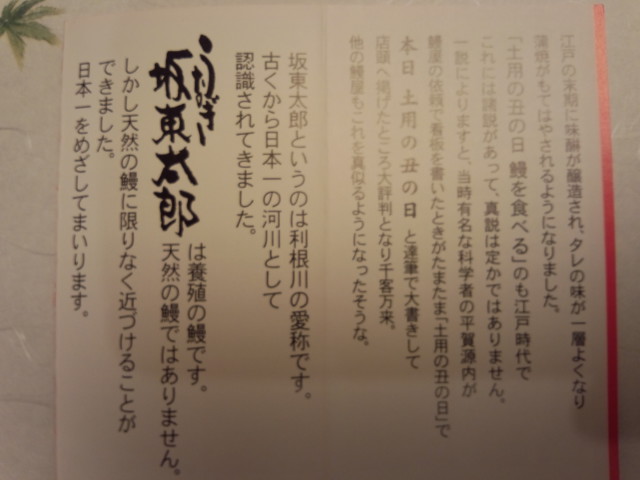 江戸の末期に味醂が醸造され、タレの味が一層よくなり
蒲焼がもてはやされるようになりました。
「土用の丑の日 鰻を食べる」のも江戸時代で
これには諸説があって、真説は定かではありません。
一説によりますと、当時有名な科学者の平賀源内が
鰻屋の依頼で看板を書いたときがたまたま「土用の丑の日」で
本日 土用の丑の日 と達筆で大書きして
店頭へ掲げたところ大評判となり千客万来。
他の鰻屋もこれを真似るようになったそうな。
坂東太郎というのは利根川の愛称です。
古くから日本一の河川として
認識されてきました。
うなぎ
坂東太郎
は養殖の鰻です。
天然の鰻ではありません。
しかし天然の鰻に限りなく近づけることが
できました。
日本一をめざしてまいります。